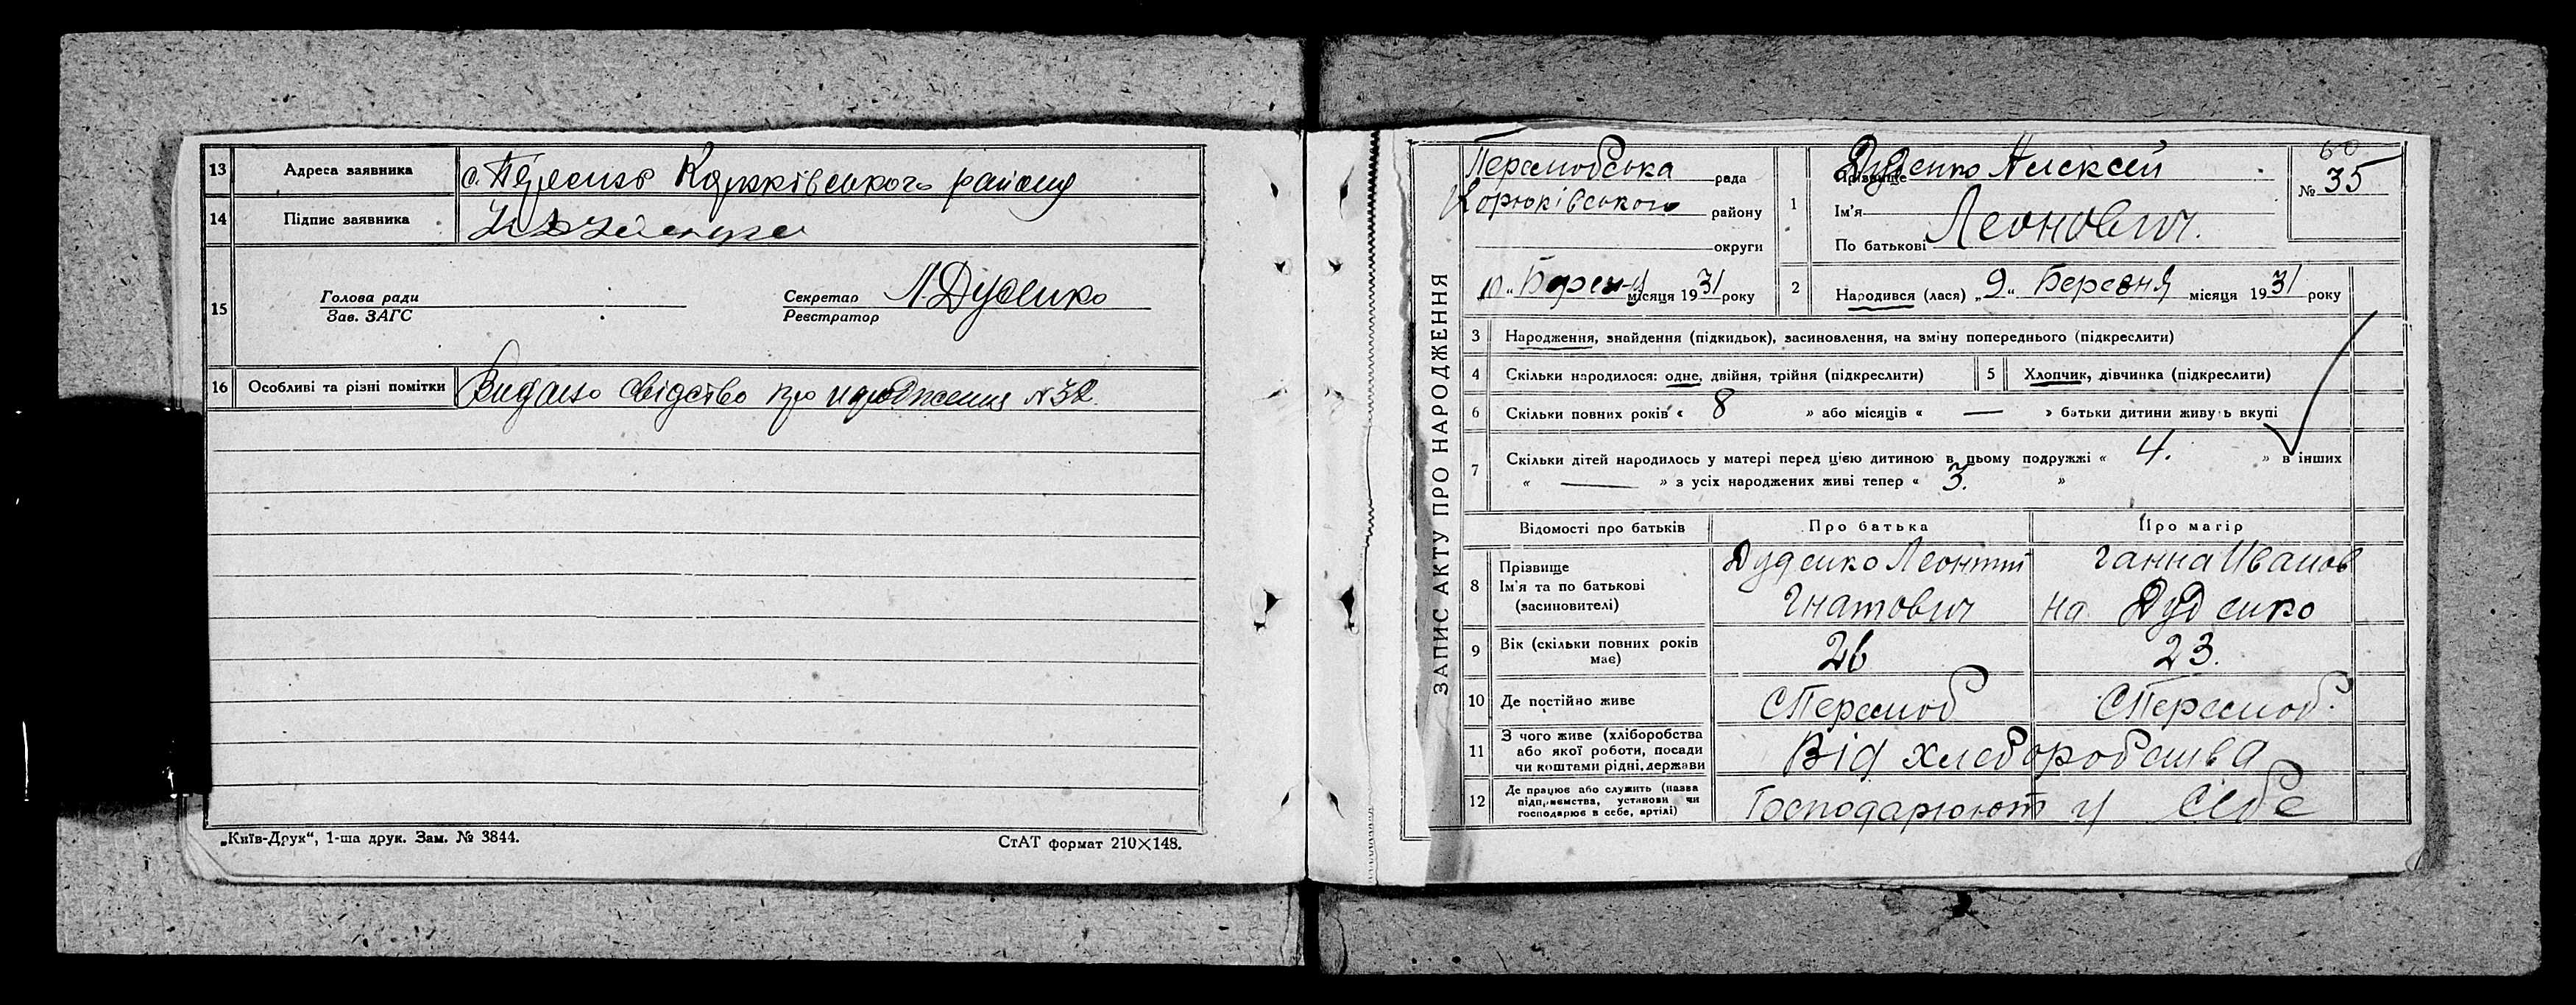 13 Адреса заявника с. Перелюб Корюківського району
14 Підпис заявника
15 Голова ради Секретар Л. Дуденко
Зав. ЗАГС Реєстратор
16 Особливі та різні помітки Видано свідство про народження № 32
„Київ-Друк“, 1-ша друк. Зам. № 3844. СтАТ формат 210×148.
ЗАПИС АКТУ ПРО НАРОДЖЕННЯ
Перелюбська рада
Корюківського району
округи
10 „ Березня місяця 1931 року
60
№ 35
1 Прізвище Дуденко Алексей
Ім'я
По батькові Леонович.
2 Народився (лася) „9“ Березня місяця 1931 року
3 Народження, знайдення (підкидьок), засиновлення, на зміну попереднього (підкреслити)
4 Скільки народилося: одне, двійня, трійня (підкреслити) 5 Хлопчик, дівчинка (підкреслити)
6 Скільки повних років « 8 » або місяців « — » батьки дитини живуть вкупі
7 Скільки дітей народилось у матері перед цією дитиною в цьому подружжі « 4. » в інших
« — » з усіх народжених живі тепер « 3. »
Відомості про батьків Про батька Про матір
8 Прізвище Ім'я та по батькові (засиновителі)
Дуденко Леонтій Гнатович
Ганна Иванов на Дуденко
9 Вік (скільки повних років має) 26 23.
10 Де постійно живе С Перелюб С Перелюб.
11 З чого живе (хліборобства або якої роботи, посади чи коштами рідні, держави
Від хлеборобства
12 Де працює або служить (назва підприємства, установи чи господарює в себе, артілі)
Господарюют у себе